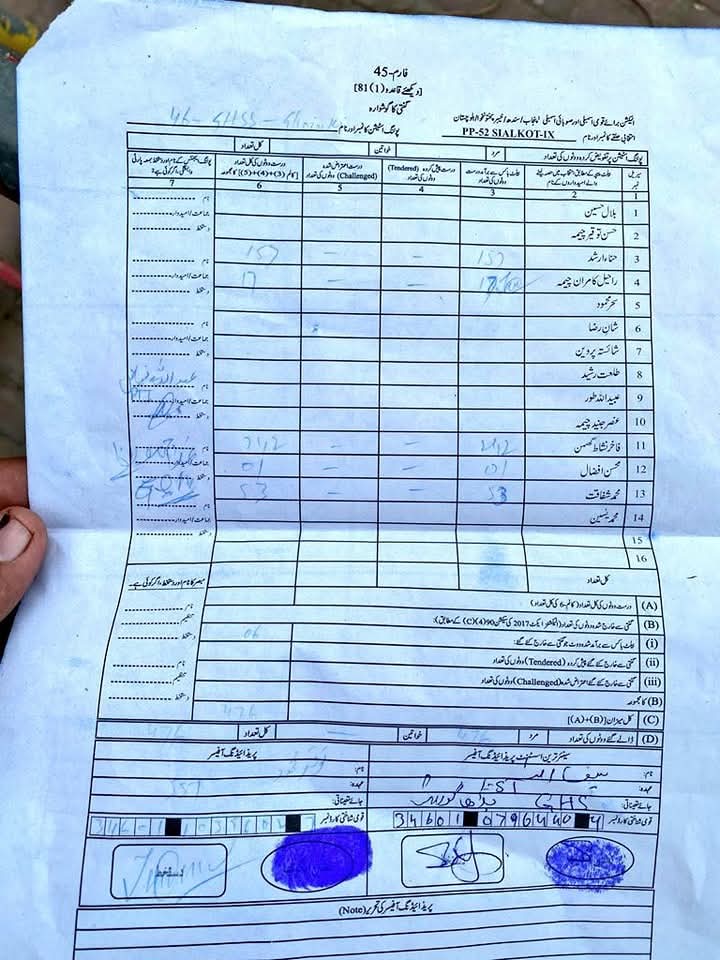 فارم-45
[دیکھئے قاعدہ (1)81]
گنتی کا گوشوارہ
الیکشن برائے قومی اسمبلی اور صوبائی اسمبلی پنجاب/سندھ/خیبر پختونخوا/بلوچستان
انتخابی حلقے کا نمبر اور نام PP-52 SIALKOT-IX پولنگ اسٹیشن کا نمبر اور نام 46- GHSS-
پولنگ اسٹیشن پر تفویض کردہ ووٹوں کی تعداد مرد خواتین کل تعداد
سیریل نمبر
بیلٹ پیپر کے مطابق انتخاب میں حصہ لینے والے امیدواروں کے نام
بیلٹ باکس سے برآمد درست ووٹوں کی تعداد
درست پیش کردہ (Tendered) ووٹوں کی تعداد
درست اعتراض شدہ (Challenged) ووٹوں کی تعداد
درست ووٹوں کی کل تعداد [کالم (3)+(4)+(5)] کا مجموعہ
1 2 3 4 5 6 7
1 بلال حسین
2 حسن توقیر چیمہ
3 حنا ارشد 157 – – 157
4 راحیل کامران چیمہ 17 – – 17
5 سحر محمود
6 شان رضا
7 شائستہ پروین
8 طلعت رشید
9 عبید اللہ طور
10 عنصر جنید چیمہ
11 فاخر نشاط گھمن 242 – – 242
12 محسن افضال 01 – – 01
13 محمد شفاقت 53 – – 53
14 محمد یٰسین
15
16
کل تعداد
نام
جماعت/امیدوار
دستخط
نام
جماعت/امیدوار
دستخط
نام
جماعت/امیدوار
دستخط
نام
جماعت/امیدوار
دستخط
نام
جماعت/امیدوار
دستخط
نام
جماعت/امیدوار
دستخط
مبصر کا نام اور دستخط، اگر کوئی ہے
نام
تنظیم
دستخط
نام
تنظیم
دستخط
(A) درست ووٹوں کی کل تعداد (کالم-6 کی کل تعداد)
(B) گنتی سے خارج شدہ ووٹوں کی تعداد (الیکشنز ایکٹ 2017 کی سیکشن 90(4)(C) کے مطابق):
(i) بیلٹ باکس سے برآمد شدہ ووٹ جو گنتی سے خارج کئے گئے: 06
(ii) گنتی سے خارج کئے گئے پیش کردہ (Tendered) ووٹوں کی تعداد
(iii) گنتی سے خارج کئے گئے اعتراض شدہ (Challenged) ووٹوں کی تعداد
(B) کا مجموعہ
(C) کل میزان [(A)+(B)] 476
(D) ڈالے گئے ووٹوں کی تعداد مرد 476 خواتین — کل تعداد 476
سینئر ترین اسسٹنٹ پریذائیڈنگ آفیسر
نام:
عہدہ: EST
جائے تعیناتی: GHS
قومی شناختی کارڈ نمبر
پریذائیڈنگ آفیسر
نام:
عہدہ:
جائے تعیناتی:
قومی شناختی کارڈ نمبر
دستخط
پریذائیڈنگ آفیسر کی تحریر (Note)